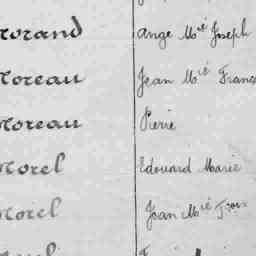 Morand Ange Mie Joseph
Moreau Jean Mie Franç
Moreau Pierre
Morel Edouard Marie
Morel Jean Mie Fçois